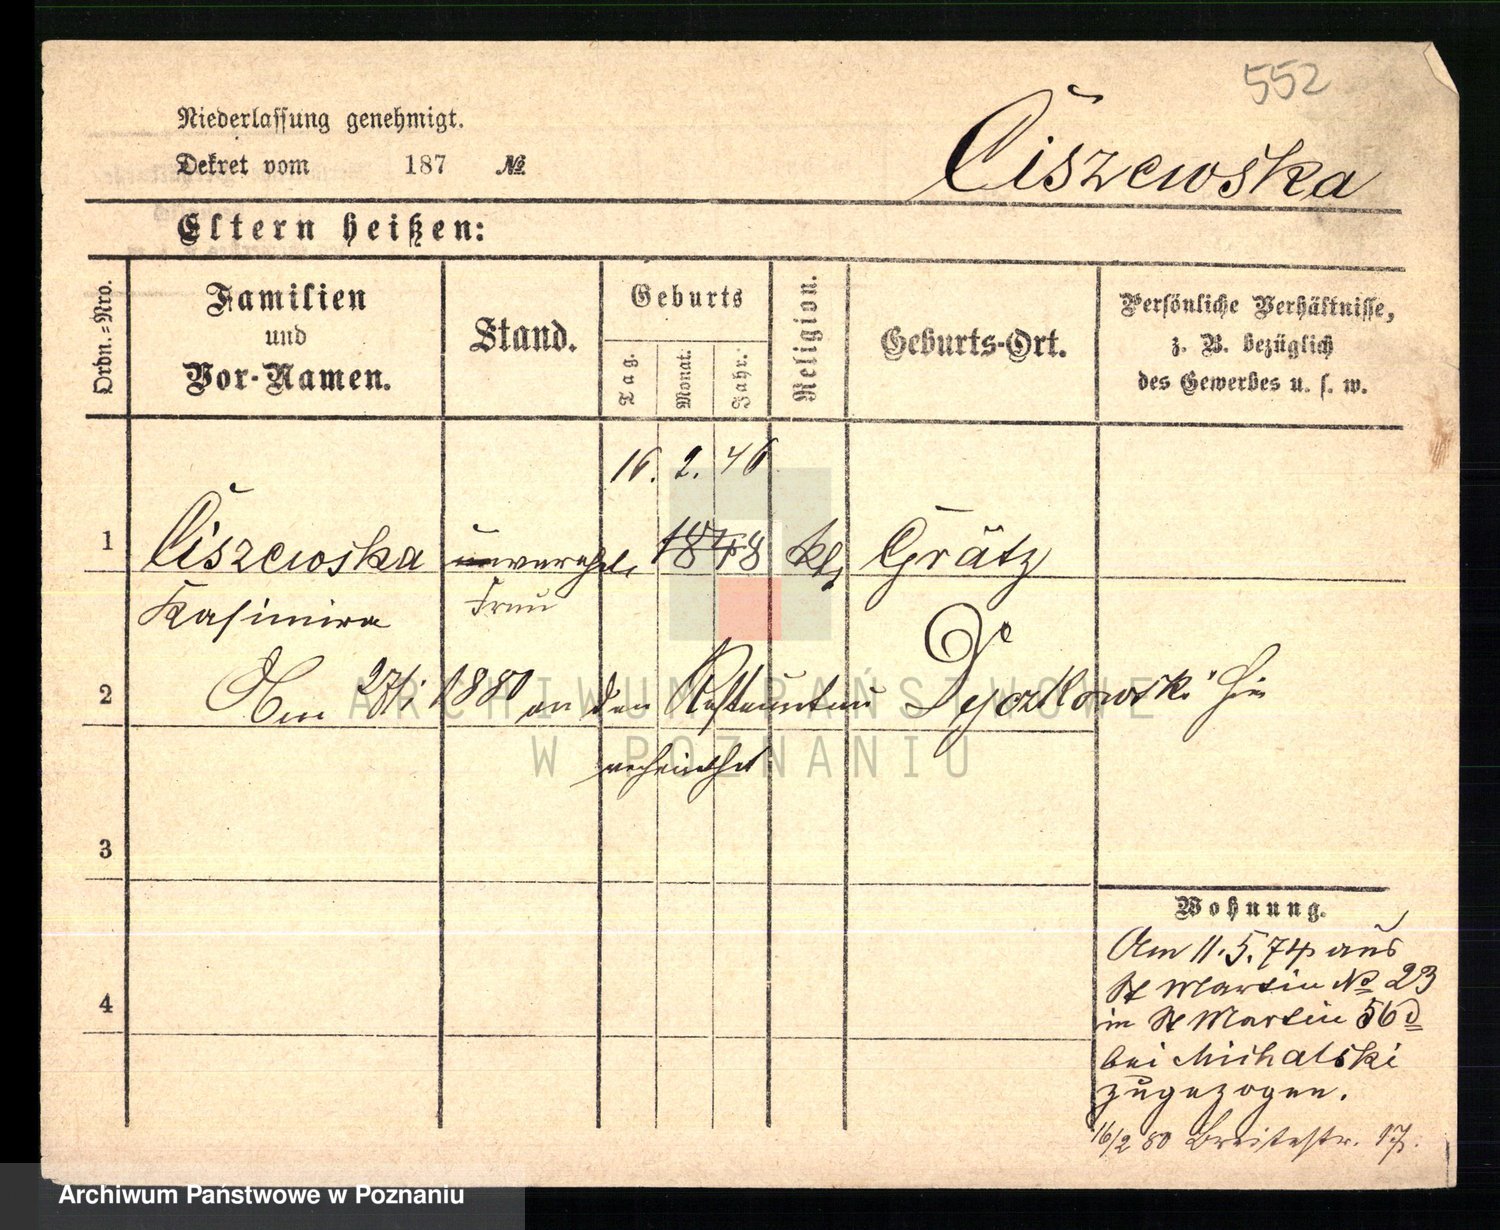 552
Niederlassung genehmigt.
Dekret vom 187 №
Ciszewska
Eltern heißen:
Ordn.-Nro.
Familien und Vor-Namen.
Stand.
Geburts
Tag.
Monat.
Jahr.
Religion.
Geburts-Ort.
Persönliche Verhältnisse, z. B. bezüglich des Gewerbes u. s. w.
16. 2. 46
1 Ciszewska unverehel. 1848 kt. Grätz
Kasimira Frau
2 Am 27/1 1880 an den Restaurateur hier
verheirathet
3
4
Wohnung.
Am 11.5.74 aus
St Martin № 23
in St Martin 56d
bei Michalski
zugezogen.
16/2 80 Breitestr. 17.
ARCHIWUM PAŃSTWOWE
W POZNANIU
Archiwum Państwowe w Poznaniu